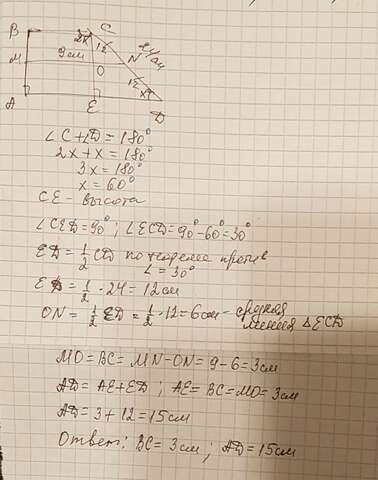 B C
2x 12
24 см
N
M 9 см O 12 x
A E D
∠C+∠D=180°
2x+x=180°
3x=180°
x=60°
CE - высота
∠CED=90°; ∠ECD=90°-60°=30°
ED=½CD по теореме против
∠=30°
ED=½·24=12см
ON=½ED=½·12=6см - средняя
линия △ECD
MO=BC=MN-ON=9-6=3см
AD=AE+ED; AE=BC=MO=3см
AD=3+12=15см
Ответ: BC=3см; AD=15см